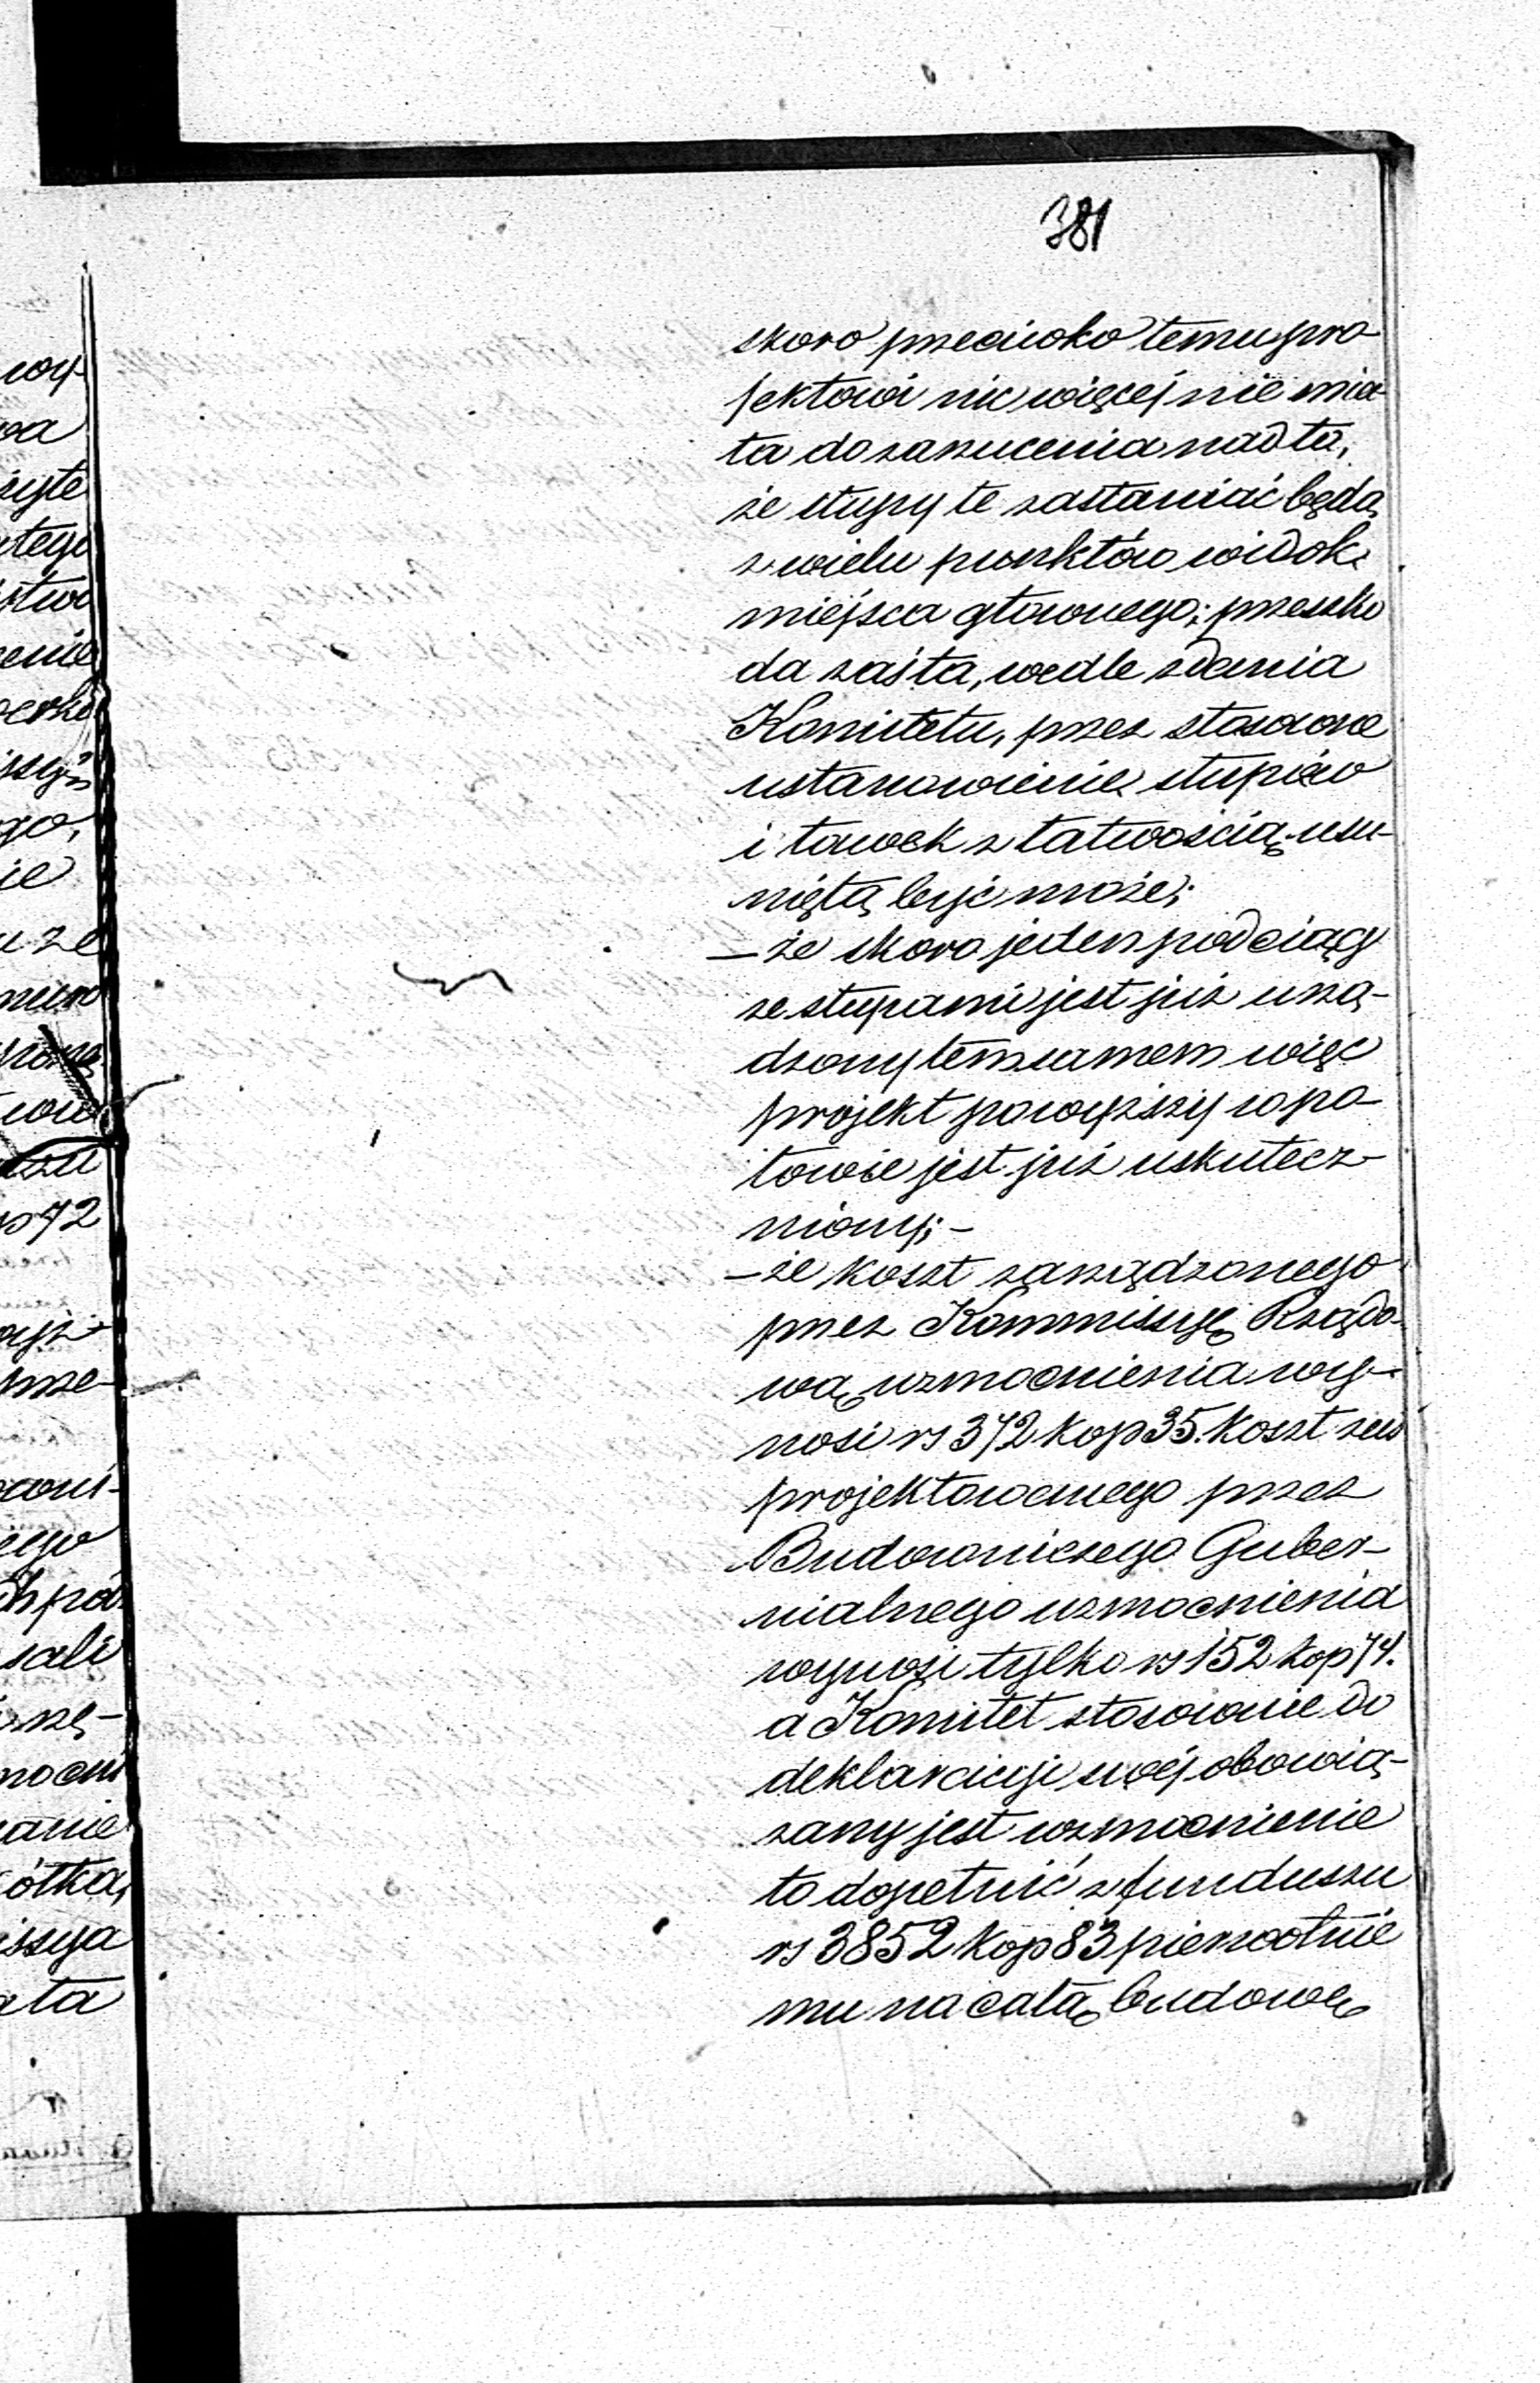 381
skoro przeciwko temu pro
jektowi nic więcej nie mia-
ła do zarzucenia nad to,
że słupy te zasłaniać będą
z wielu punktów widok
miejsca głównego; przeszko
da zaś ta, wedle zdania
Komitetu, przez stosowne
ustanowienie słupów
i ławek z łatwością usu-
niętą być może;
– że skoro jeden podciąg
ze słupami jest już urzą-
dzony tem samem więc
projekt powyższy w po
łowie jest już uskutecz-
niony; –
– że koszt zarządzonego
przez Kommissyę Rządo-
wą wzmocnienia wy-
nosi rs 372 kop 35. koszt zaś
projektowanego przez
Budowniczego Guber-
nialnego wzmocnienia
wynosi tylko rs 152 kop 74.
a Komitet stosownie do
deklaracyi swéj obowią-
zany jest wzmocnienie
to dopełnić z funduszu
rs 3852 kop 83 pierwotnie
mu na całą budowę